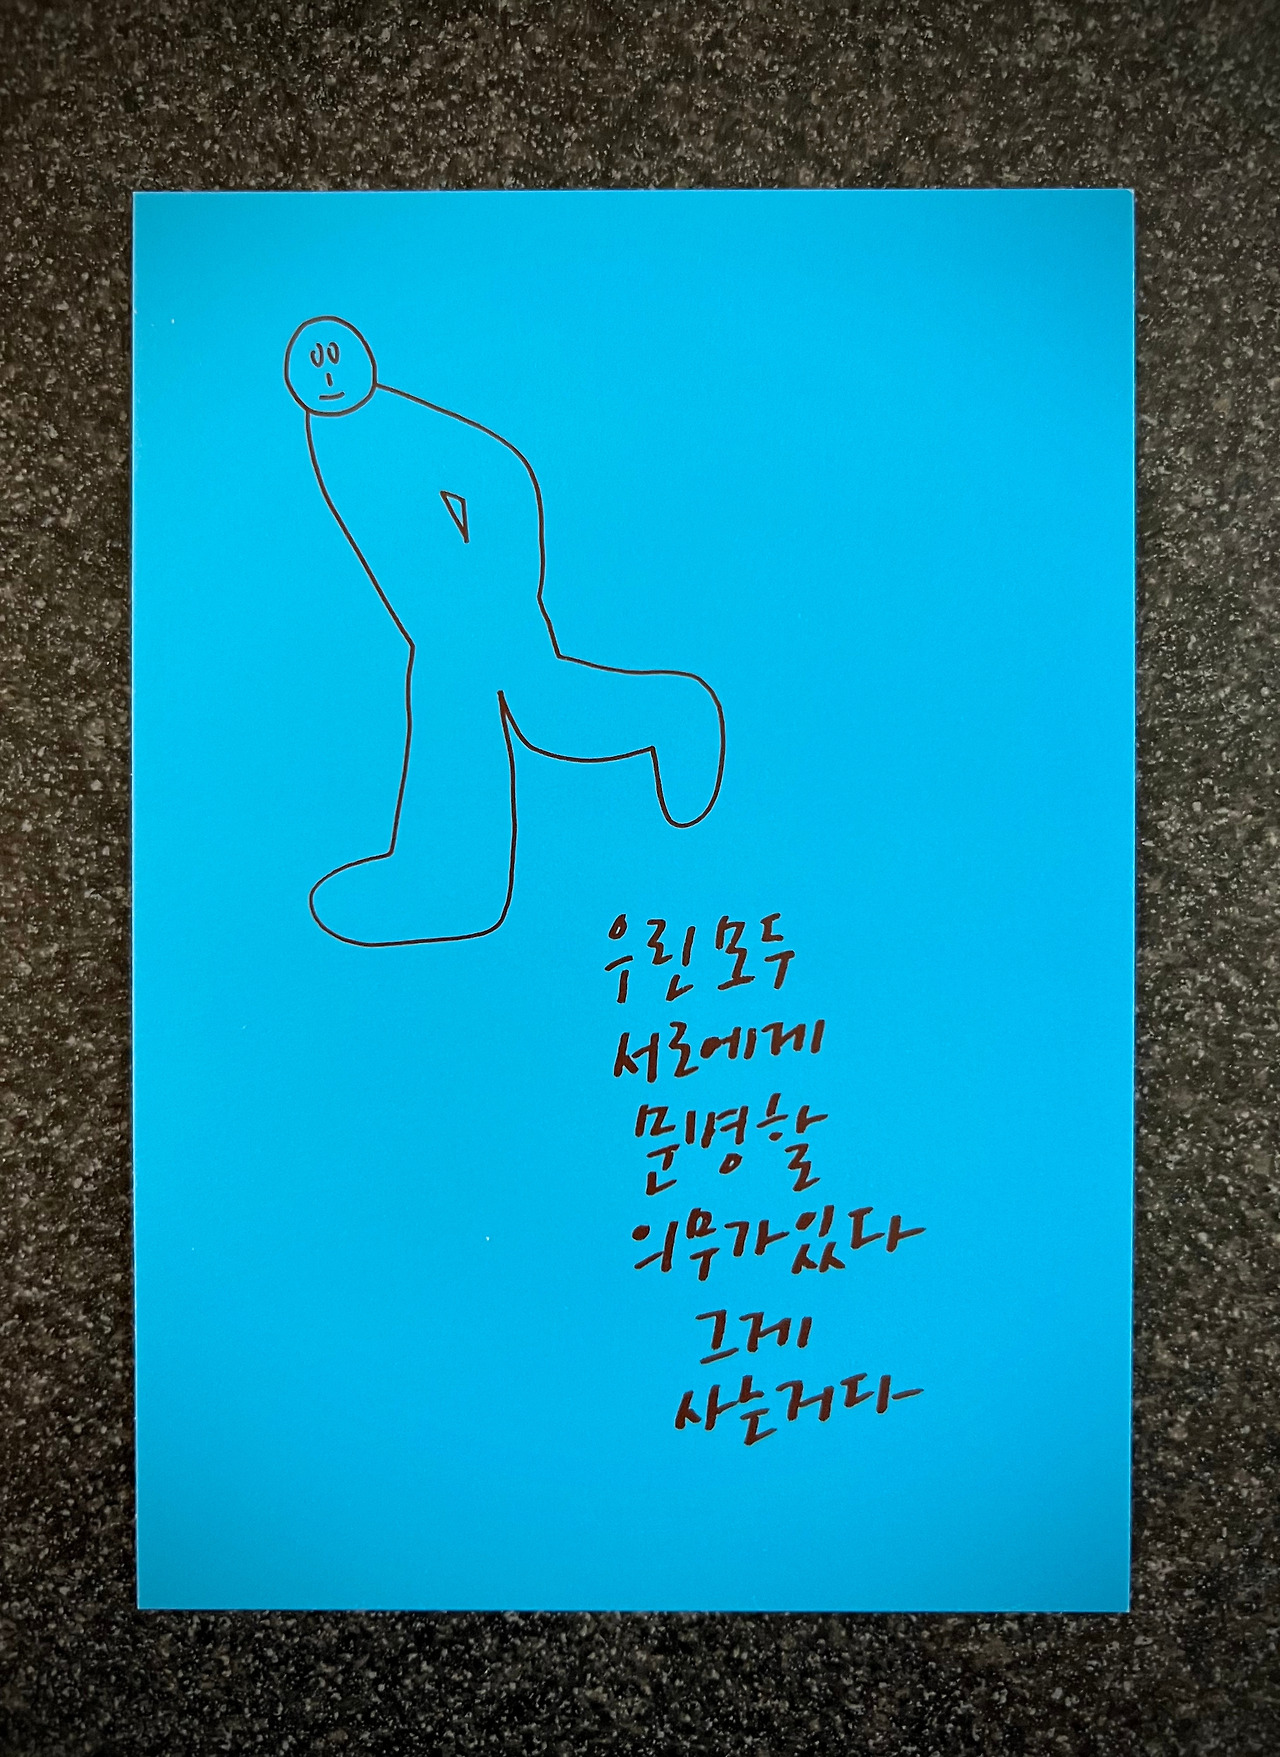 우린 모두
서로에게
문병할
의무가있다
그게
사는거다